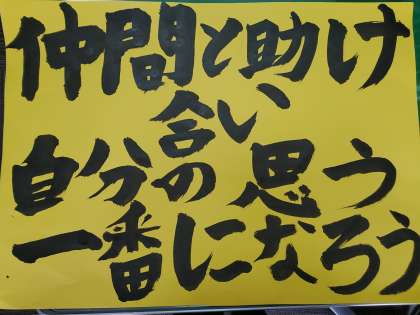 仲間と助け
合い、
自分の思う
一番になろう